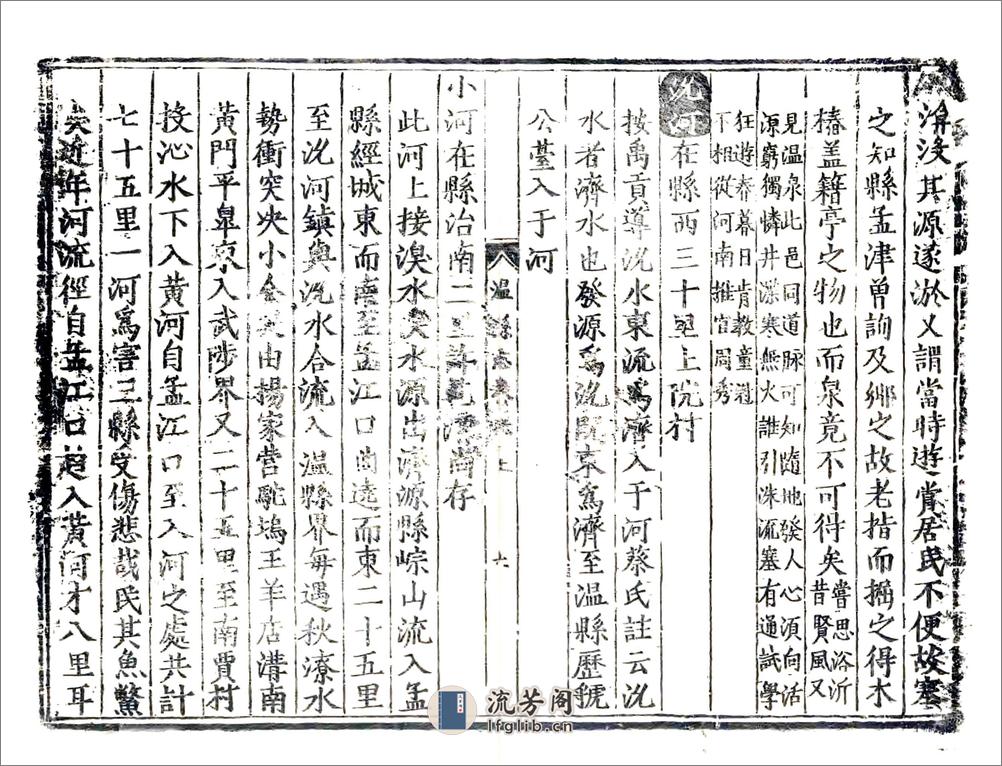 渰沒其源遂淤又謂當時遊賞居民不便故塞
之知縣孟津曽詢及鄉之故老指而掘之得木
樁盖籍亭之物也而泉竟不可得矣嘗思浴沂
昔賢風又
見温泉此邑同道脉可知隨地發人心須向活
源窮獨憐井渫寒無火誰引洙流塞有通試學
狂遊春暮日肯教童冠
不相從河南推官周秀
沇河在縣西三十里上沇村
按禹貢導沇水東流爲濟入于河蔡氏註云沇
水者濟水也發源爲沇既東爲濟至温縣歷虢
公臺入于河
温縣志卷上 六
小河在縣治南二里許尚存
此河上接湨水湨水源出濟源縣崇山流入孟
縣經城東而南至孟江口曲遶而東二十五里
至沇河鎮與沇水合流入温縣界每遇秋潦水
勢衝突决小金堤由揚家营駝塢王羊店溝南
黃門平臯京入武陟界又二十五里至南賈村
投沁水下入黃河自孟江口至入河之處共計
七十五里一河爲害三縣受傷悲哉民其魚鱉
矣近年河流徑自孟江口超入黃河才八里耳
流芳阁
lfglib.cn